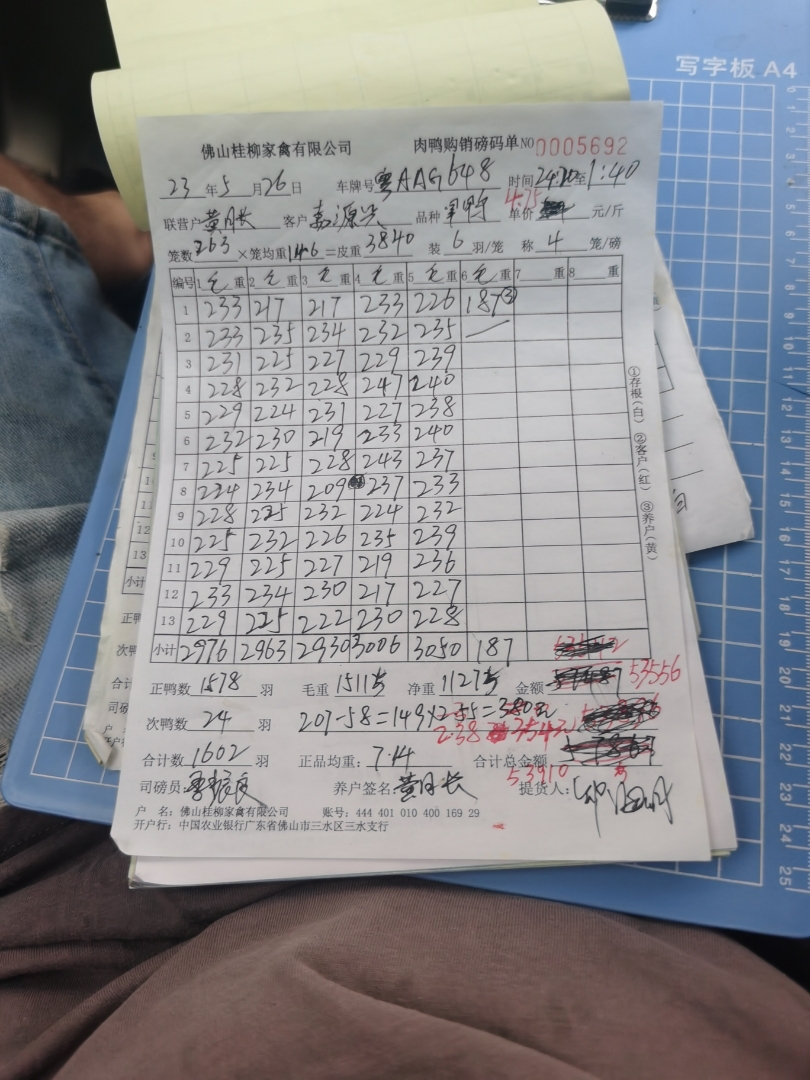 写字板 A4
佛山桂柳家禽有限公司 肉鸭购销磅码单 NO 0005692
23 年 5 月 26 日 车牌号 粤AAG648 时间 至 1:40
联营户 黄月长 客户 嘉源兴 品种 单价 4.75 元/斤
笼数 263 ×笼均重 14.6 =皮重 3840 装 6 羽/笼 称 4 笼/磅
编号 1 毛 重 2 毛 重 3 毛 重 4 毛 重 5 毛 重 6 毛 重 7 重 8 重
1 233 217 217 233 226 187③
2 233 235 234 232 235
3 231 225 227 229 239
4 228 232 228 247 240
5 229 224 231 227 238
6 232 230 219 233 240
7 225 225 228 243 237
8 224 234 209 237 233
9 228 225 232 224 232
10 225 232 226 235 239
11 229 225 227 219 236
12 233 234 230 217 227
13 229 225 222 230 228
小计 2976 2963 2930 3006 3050 187
正鸭数 1578 羽 毛重 15112 净重 11272 金额 53556
次鸭数 24 羽 207-58=149×2.55=380元
2.38 354
合计数 1602 羽 正品均重: 7.14 合计总金额
53910
司磅员: 养户签名: 黄月长 提货人:
户 名: 佛山桂柳家禽有限公司 账号: 444 401 010 400 169 29
开户行: 中国农业银行广东省佛山市三水区三水支行
①存根(白) ②客户(红) ③养户(黄)